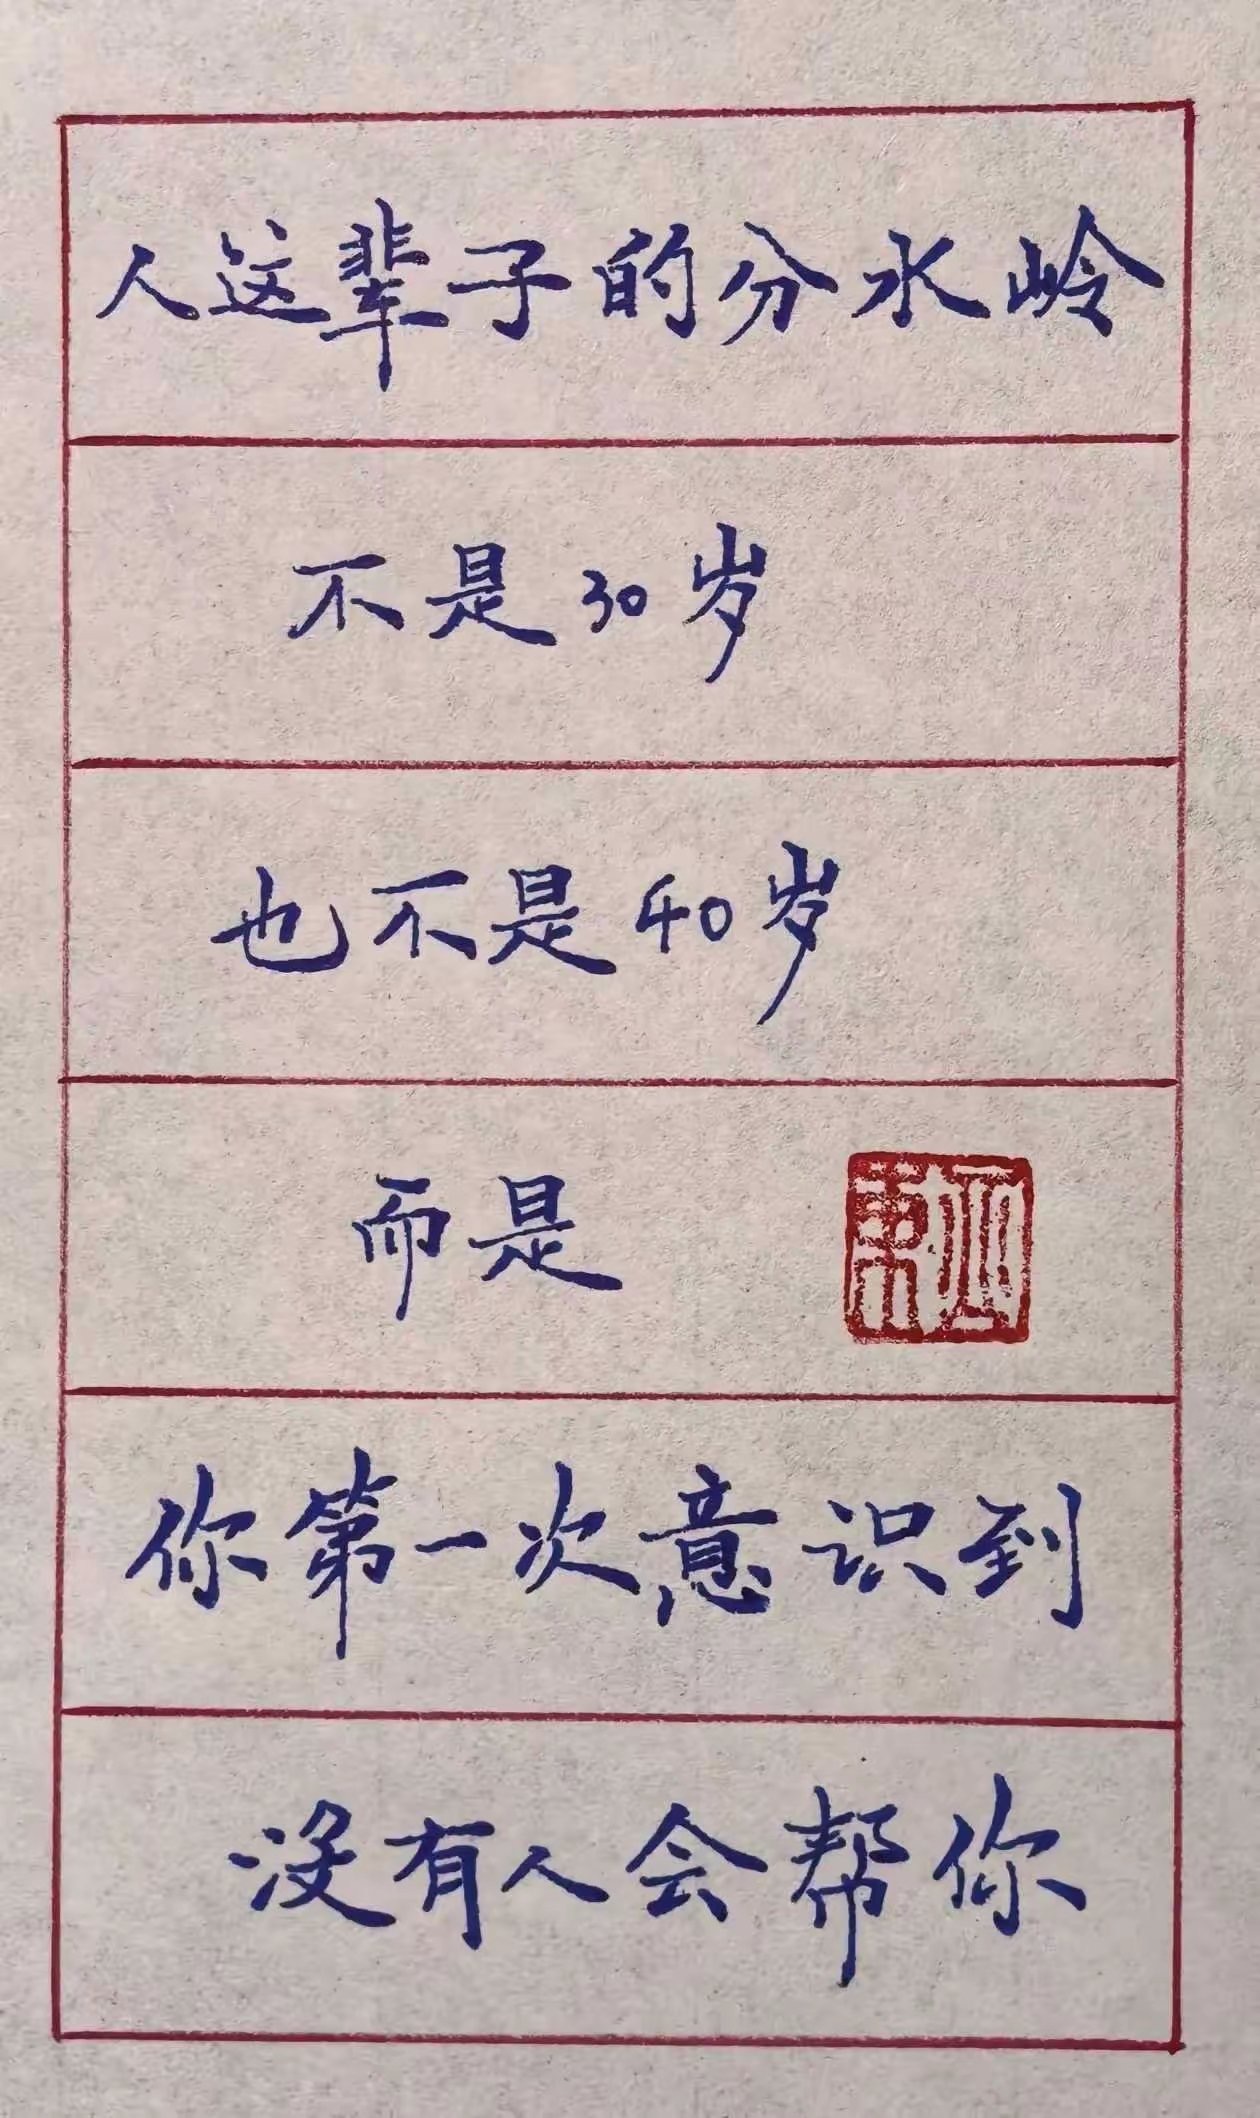 人这辈子的分水岭
不是30岁
也不是40岁
而是
你第一次意识到
没有人会帮你